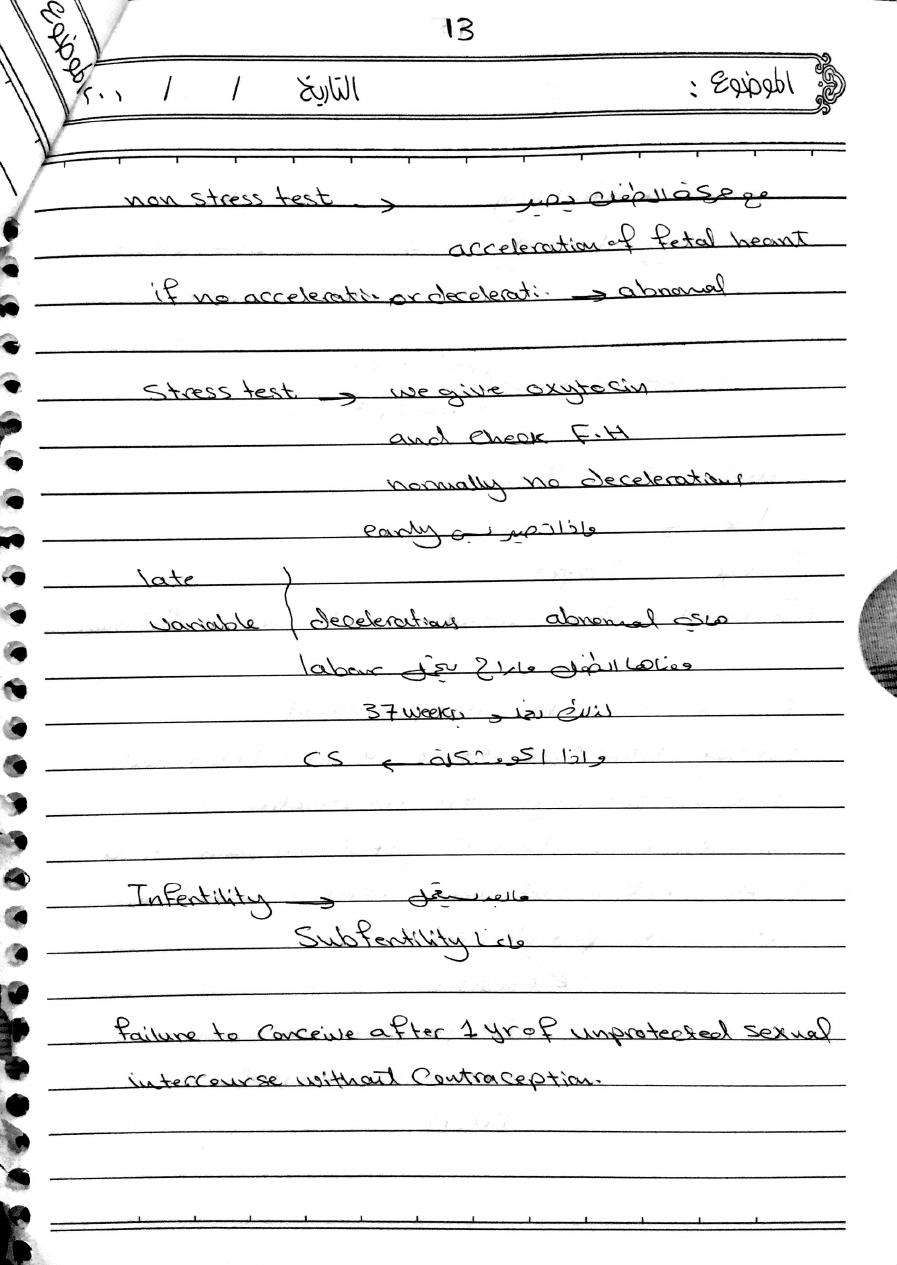 13
الموضوع
الموضوع :    التاريخ    /    /    ٢٠٠
non stress test → مع حركة الطفل يصير
acceleration of fetal heart
if no accelerati. or decelerati. → abnormal
Stress test → we give oxytocin
and check F.H
normally no decelerations
early
late
variable } decelerations    abnormal هذني
labour
37 weeks
واذا اكو مشكلة → CS
Infertility →
Subfertility
failure to conceive after 1 yr of unprotected sexual
intercourse without Contraception.